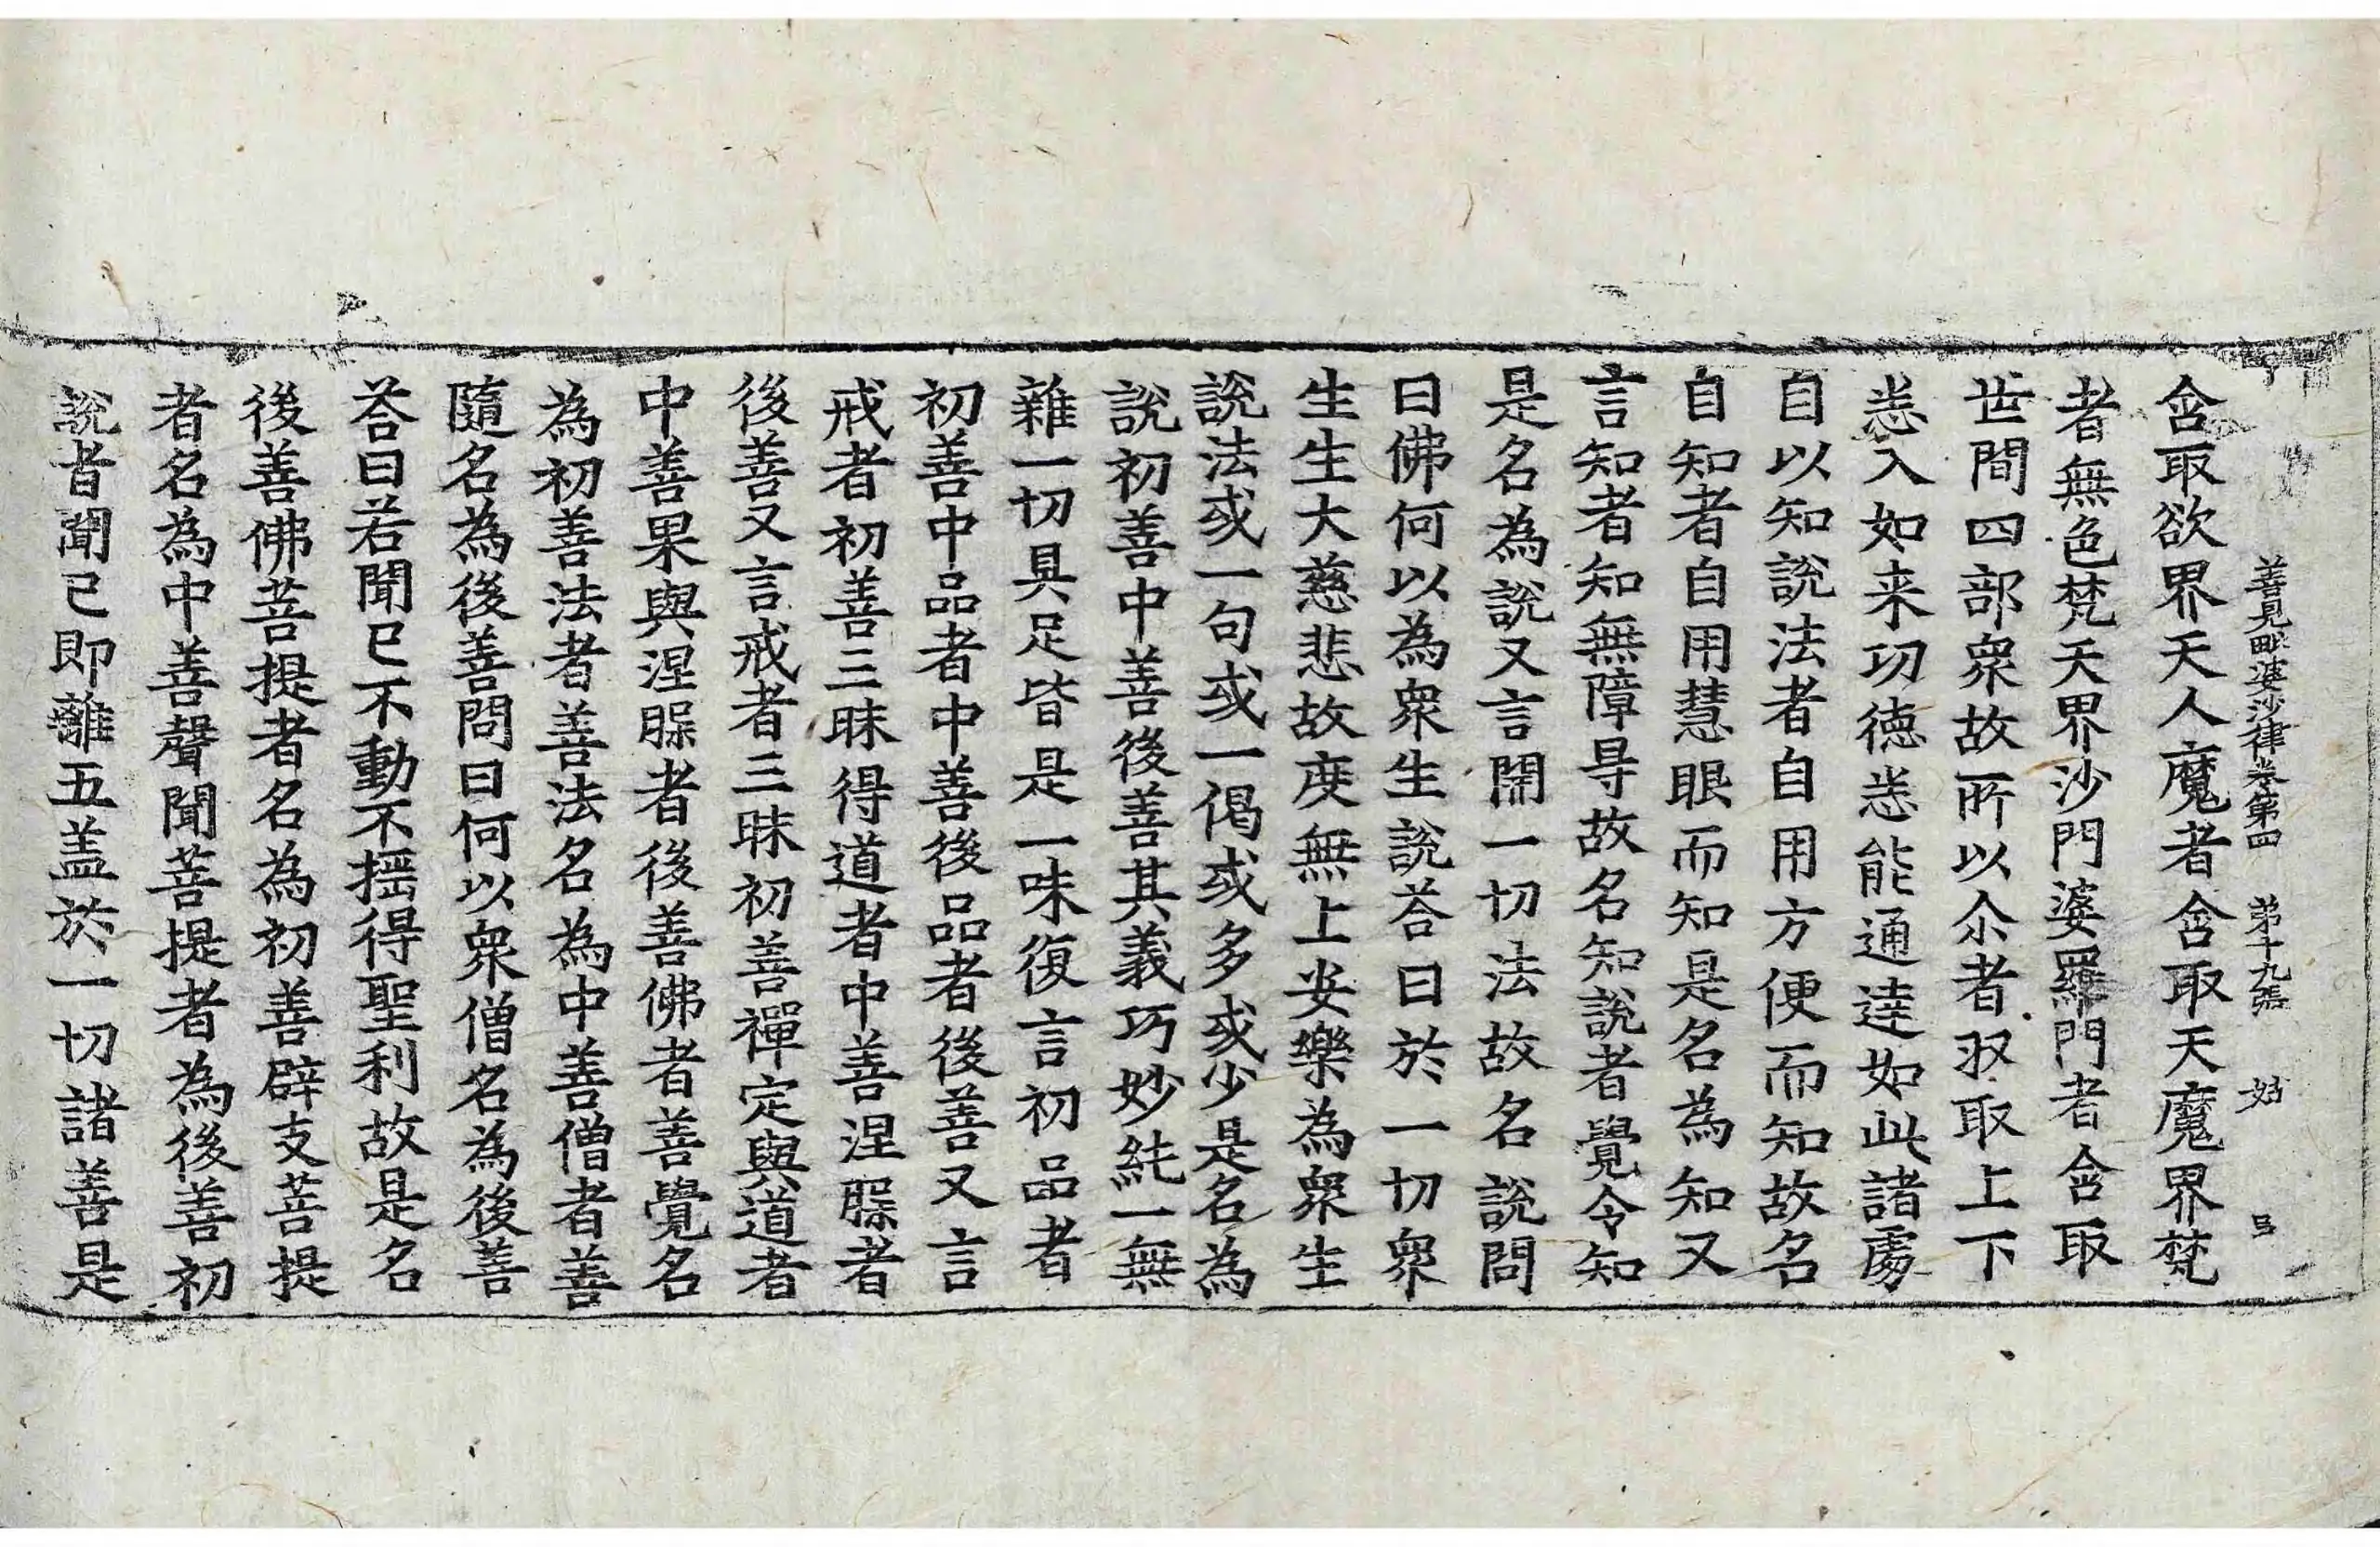 善見毗婆沙律卷第四 第十九張 姑
含取欲界天人魔者含取天魔界梵
者無色梵天界沙門婆羅門者含取
世間四部衆故所以尒者𠬧取上下
悉入如来功德悉能通達如此諸處
自以知說法者自用方便而知故名
自知者自用慧眼而知是名為知又
言知者知無障㝵故名知說者覺令知
是名為說又言開一切法故名說問
曰佛何以為衆生說荅曰於一切衆
生生大慈悲故度無上安樂為衆生
說法或一句或一偈或多或少是名為
說初善中善後善其義巧妙純一無
雜一切具足皆是一味復言初品者
初善中品者中善後品者後善又言
戒者初善三昧得道者中善涅槃者
後善又言戒者三昧初善禪定與道者
中善果與涅槃者後善佛者善覺名
為初善法者善法名為中善僧者善
隨名為後善問曰何以衆僧名為後善
荅曰若聞已不動不摇得聖利故是名
後善佛菩提者名為初善辟支菩提
者名為中善聲聞菩提者為後善初
說者聞已即離五盖於一切諸善是